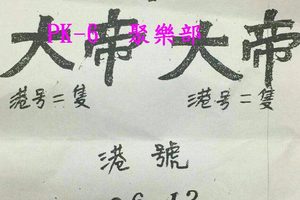 PK-6 聚樂部
大帝 大帝
港号=隻 港号=隻
港號